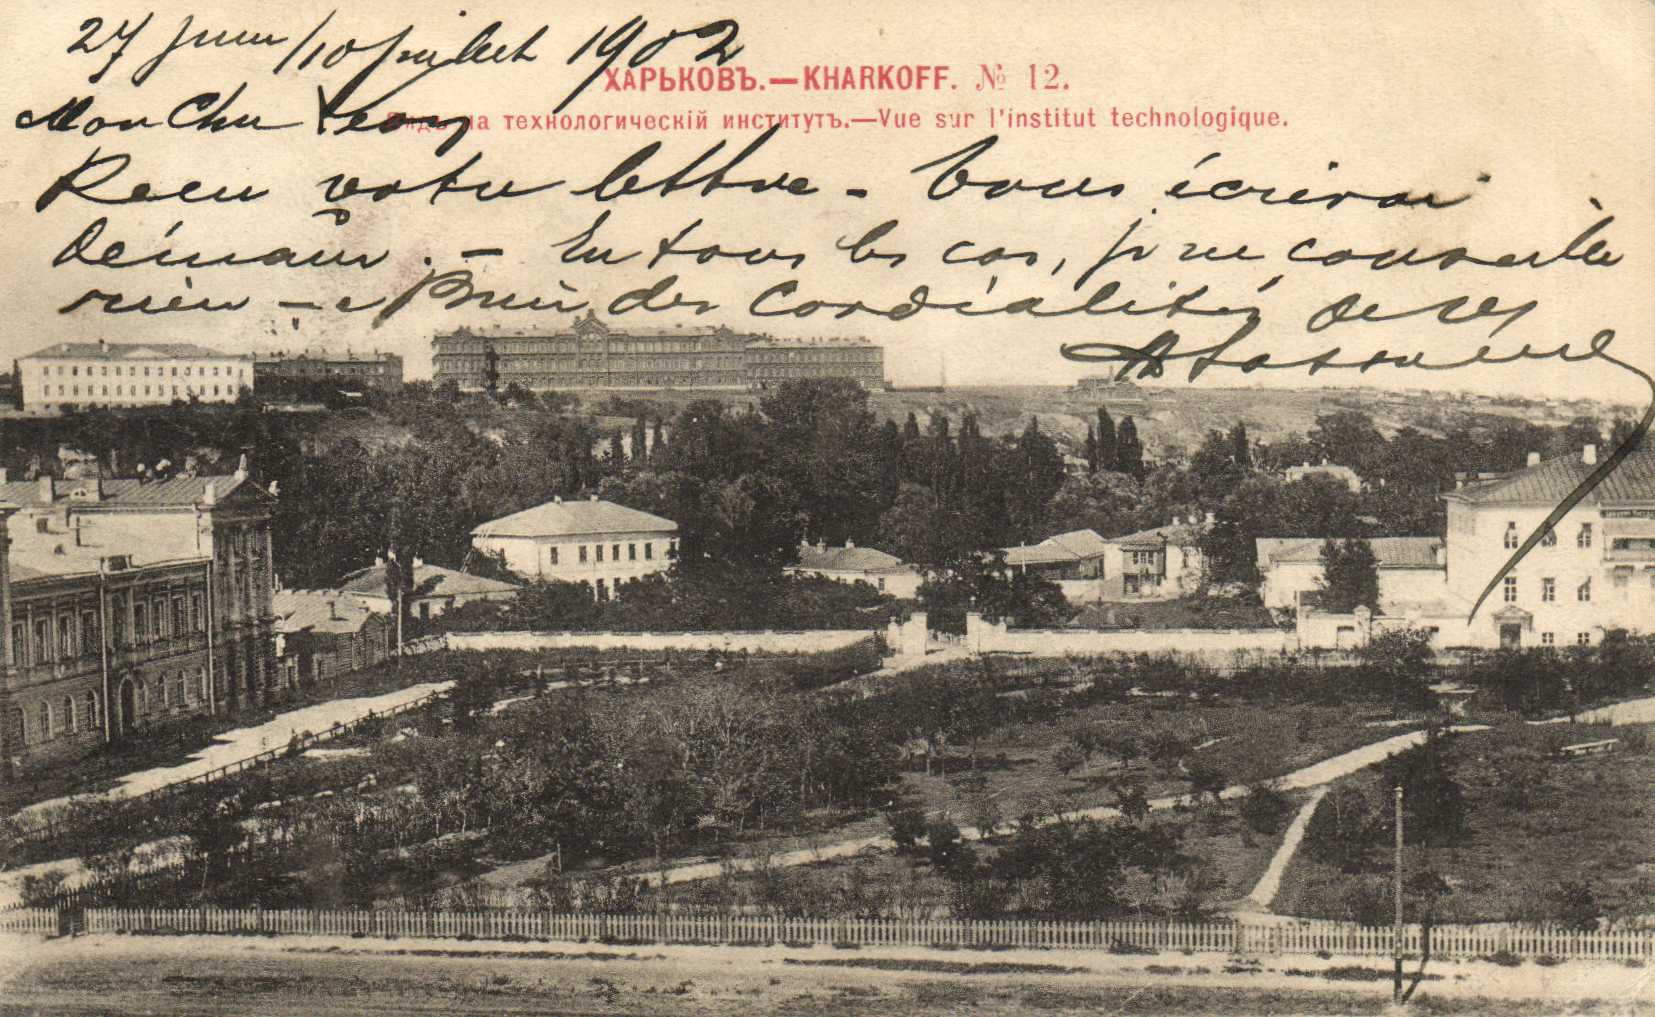 27 juin/10 juillet 1902
ХАРЬКОВЪ.—KHARKOFF. № 12.
Видъ на технологическій институтъ.—Vue sur l'institut technologique.
Mon Cher Leon
Recu votre lettre - Vous écrirai
demain. - En tous les cas, je ne conseille
rien - Bien des cordialités de